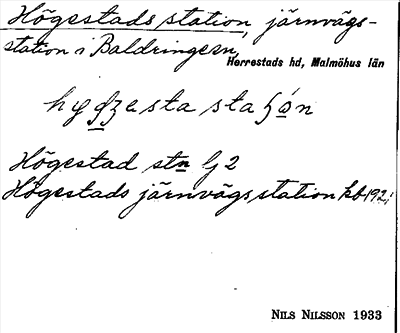 Högestads station, järnvägs-
station i Baldringe sn,
Herrestads hd, Malmöhus län
Högestad stn Lj 2
Högestads järnvägsstation kb 192
NILS NILSSON 1933